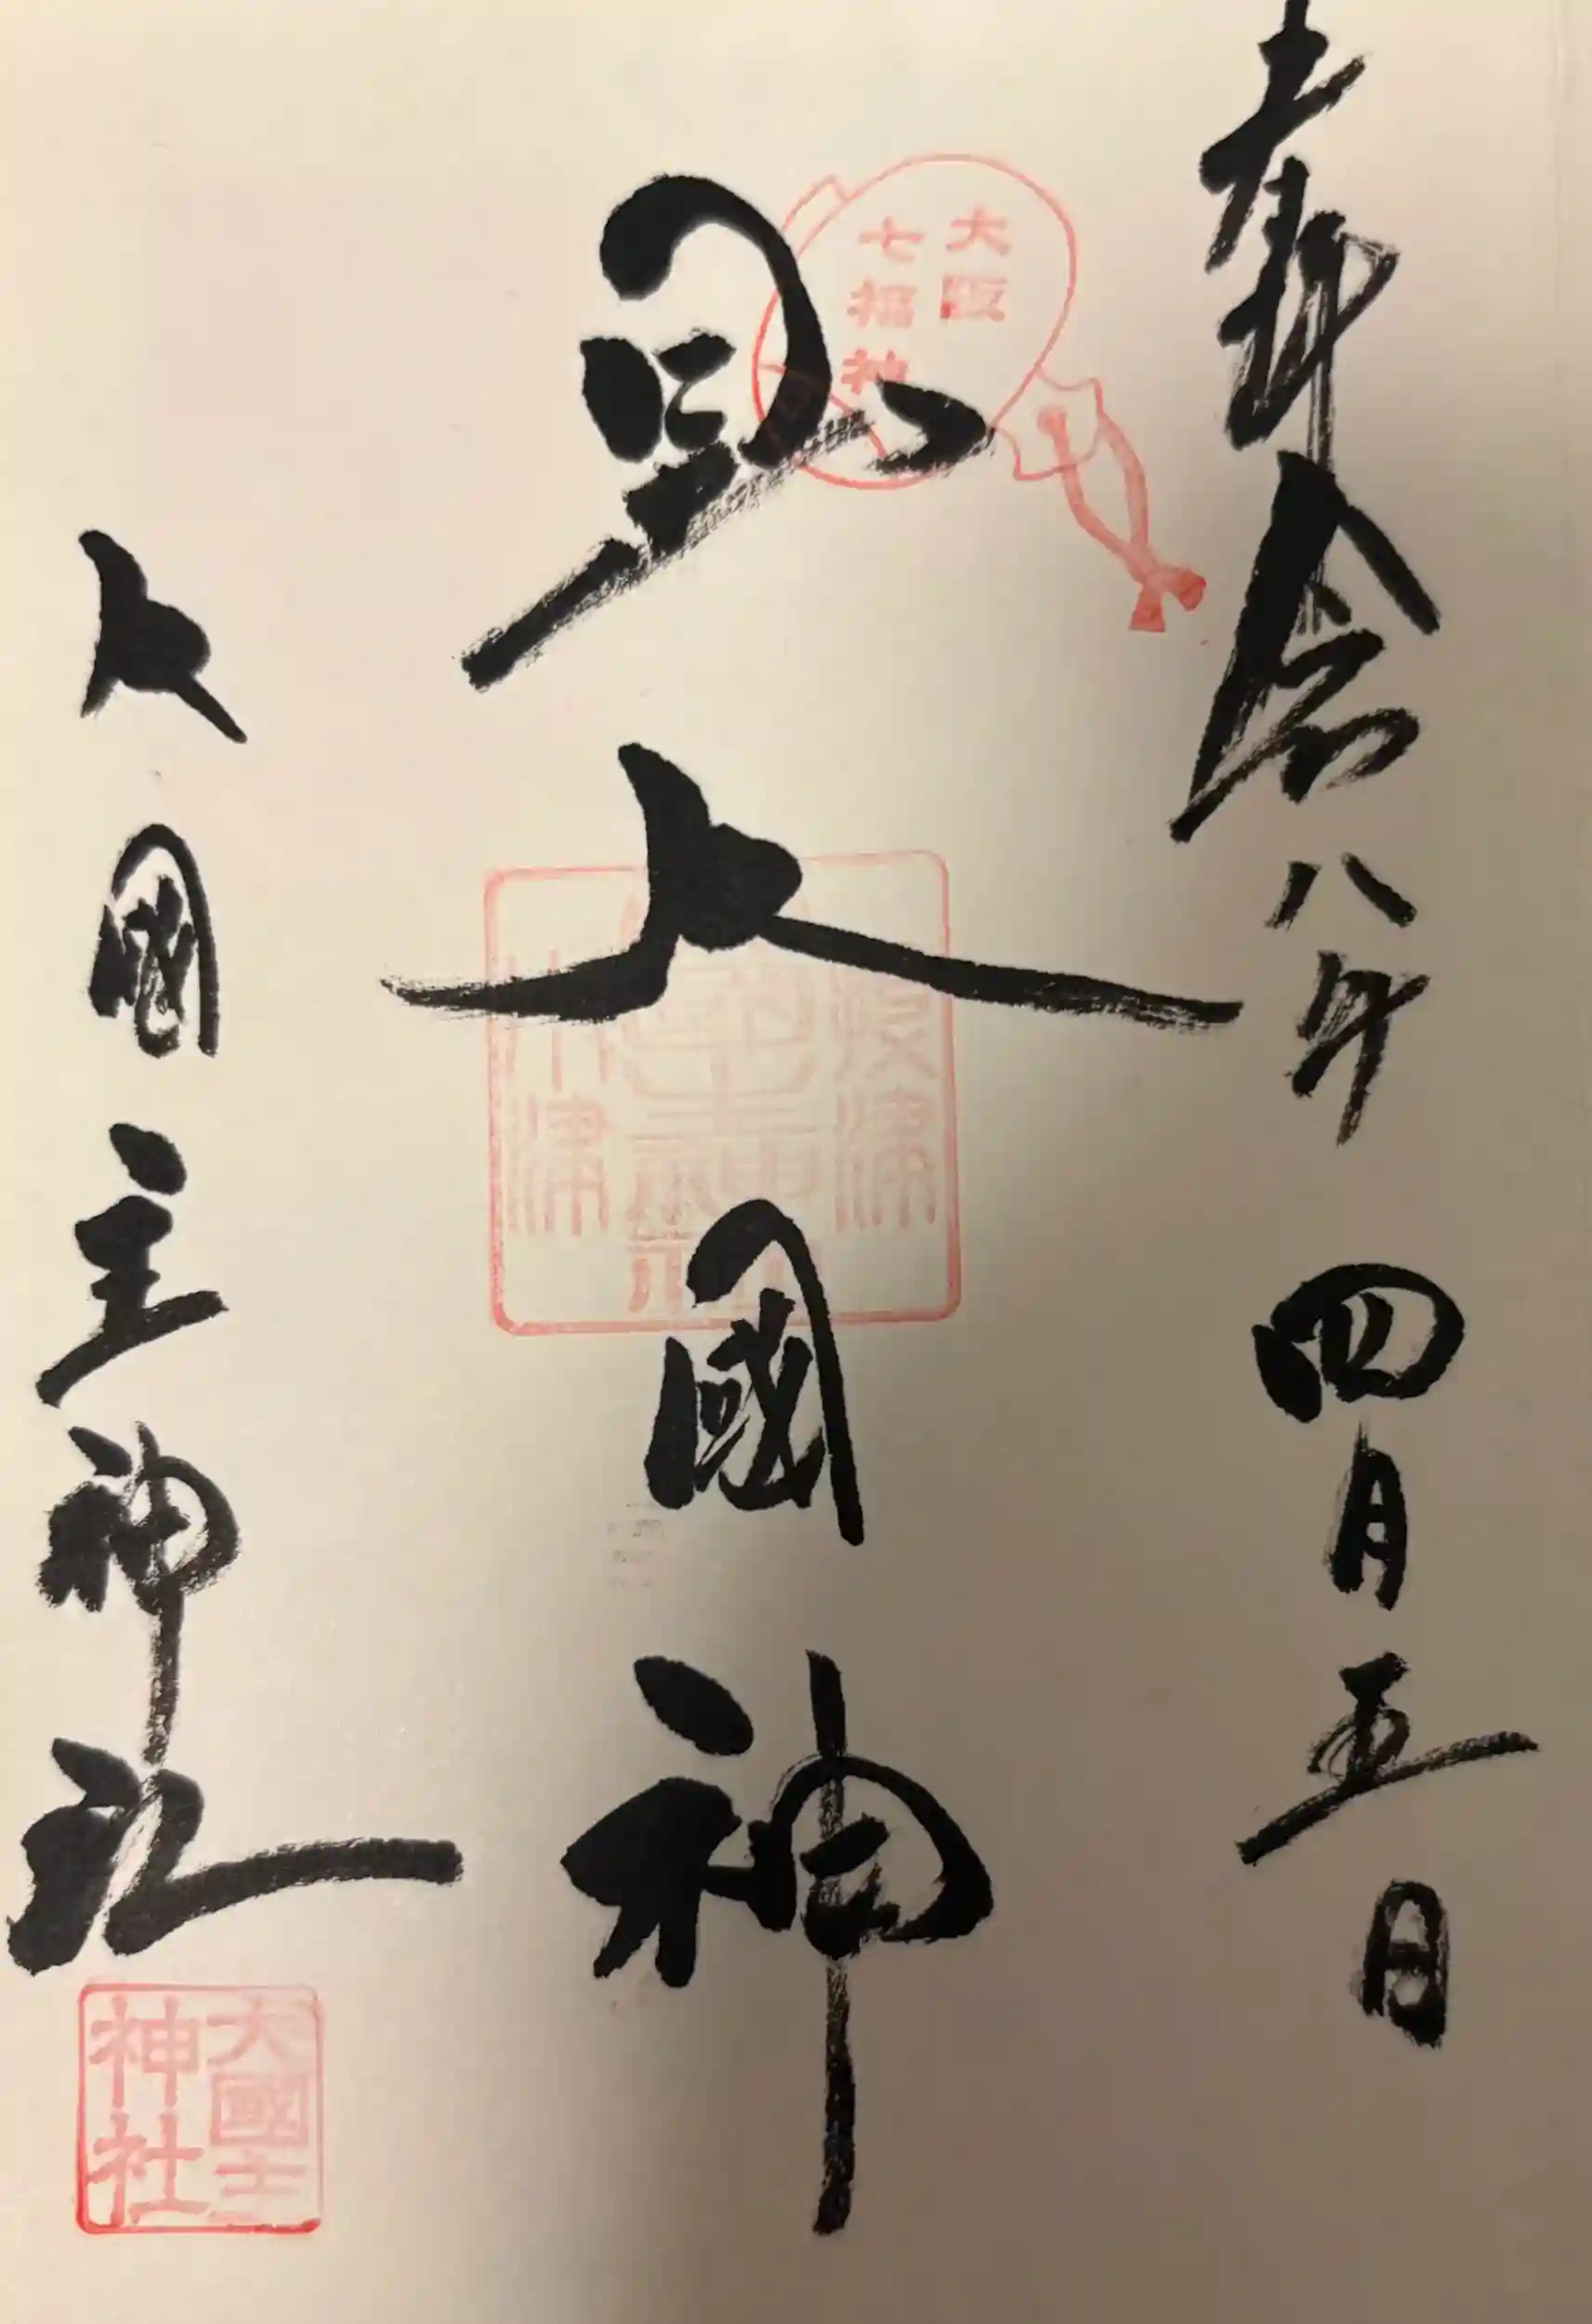 奉拝 令和八年 四月五日
大阪
七福神
大國神
大國主神社
大國主
神社